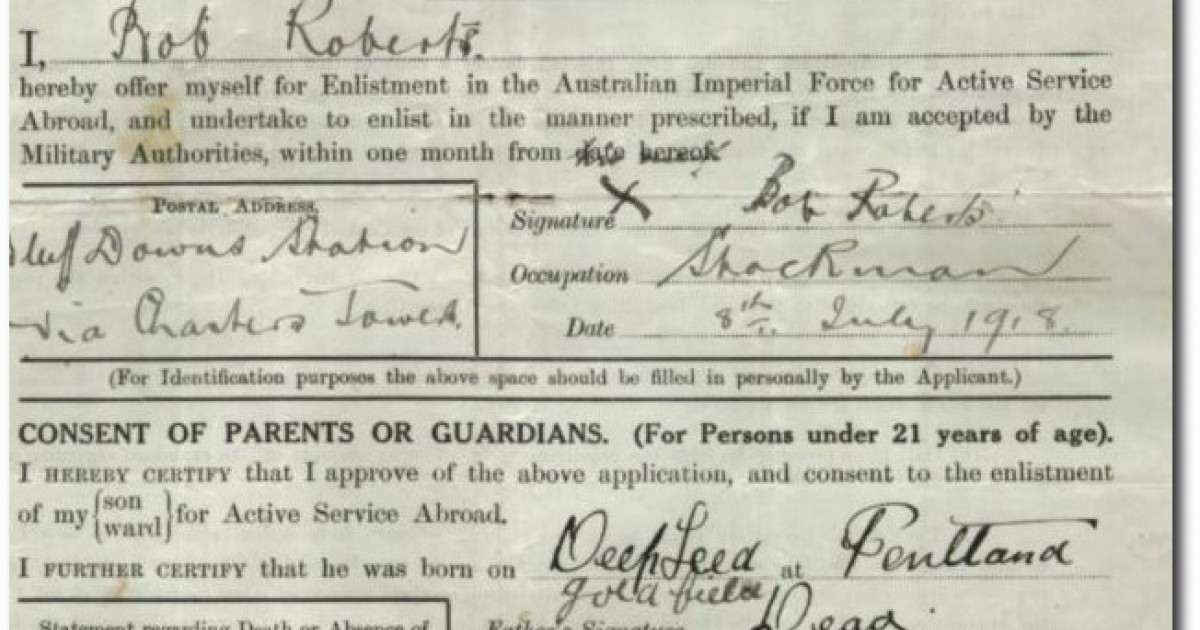 I, Bob Roberts.
hereby offer myself for Enlistment in the Australian Imperial Force for Active Service
Abroad, and undertake to enlist in the manner prescribed, if I am accepted by the
Military Authorities, within one month from date hereof
POSTAL ADDRESS.
Bluff Downs Station
via Charters Towers.
Signature X Bob Roberts
Occupation Stockman
Date 8th July 1918.
(For Identification purposes the above space should be filled in personally by the Applicant.)
CONSENT OF PARENTS OR GUARDIANS. (For Persons under 21 years of age).
I HEREBY CERTIFY that I approve of the above application, and consent to the enlistment
of my {son ward} for Active Service Abroad.
I FURTHER CERTIFY that he was born on Deep Leed at Pentland
gold field
Statement regarding Death or Absence of
Father's Signature Dead